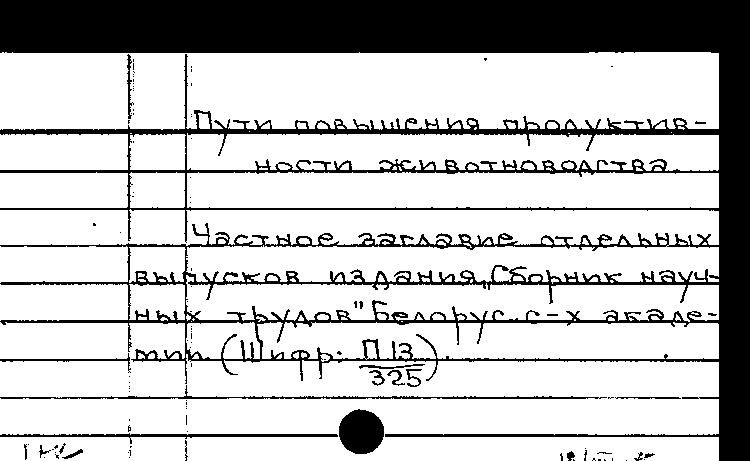 Пути повышения продуктив-
ности животноводства.
Частное заглавие отдельных
выпусков издания „Сборник науч-
ных трудов" Белорус. с-х акаде-
мии. (Шифр: П 13
325).